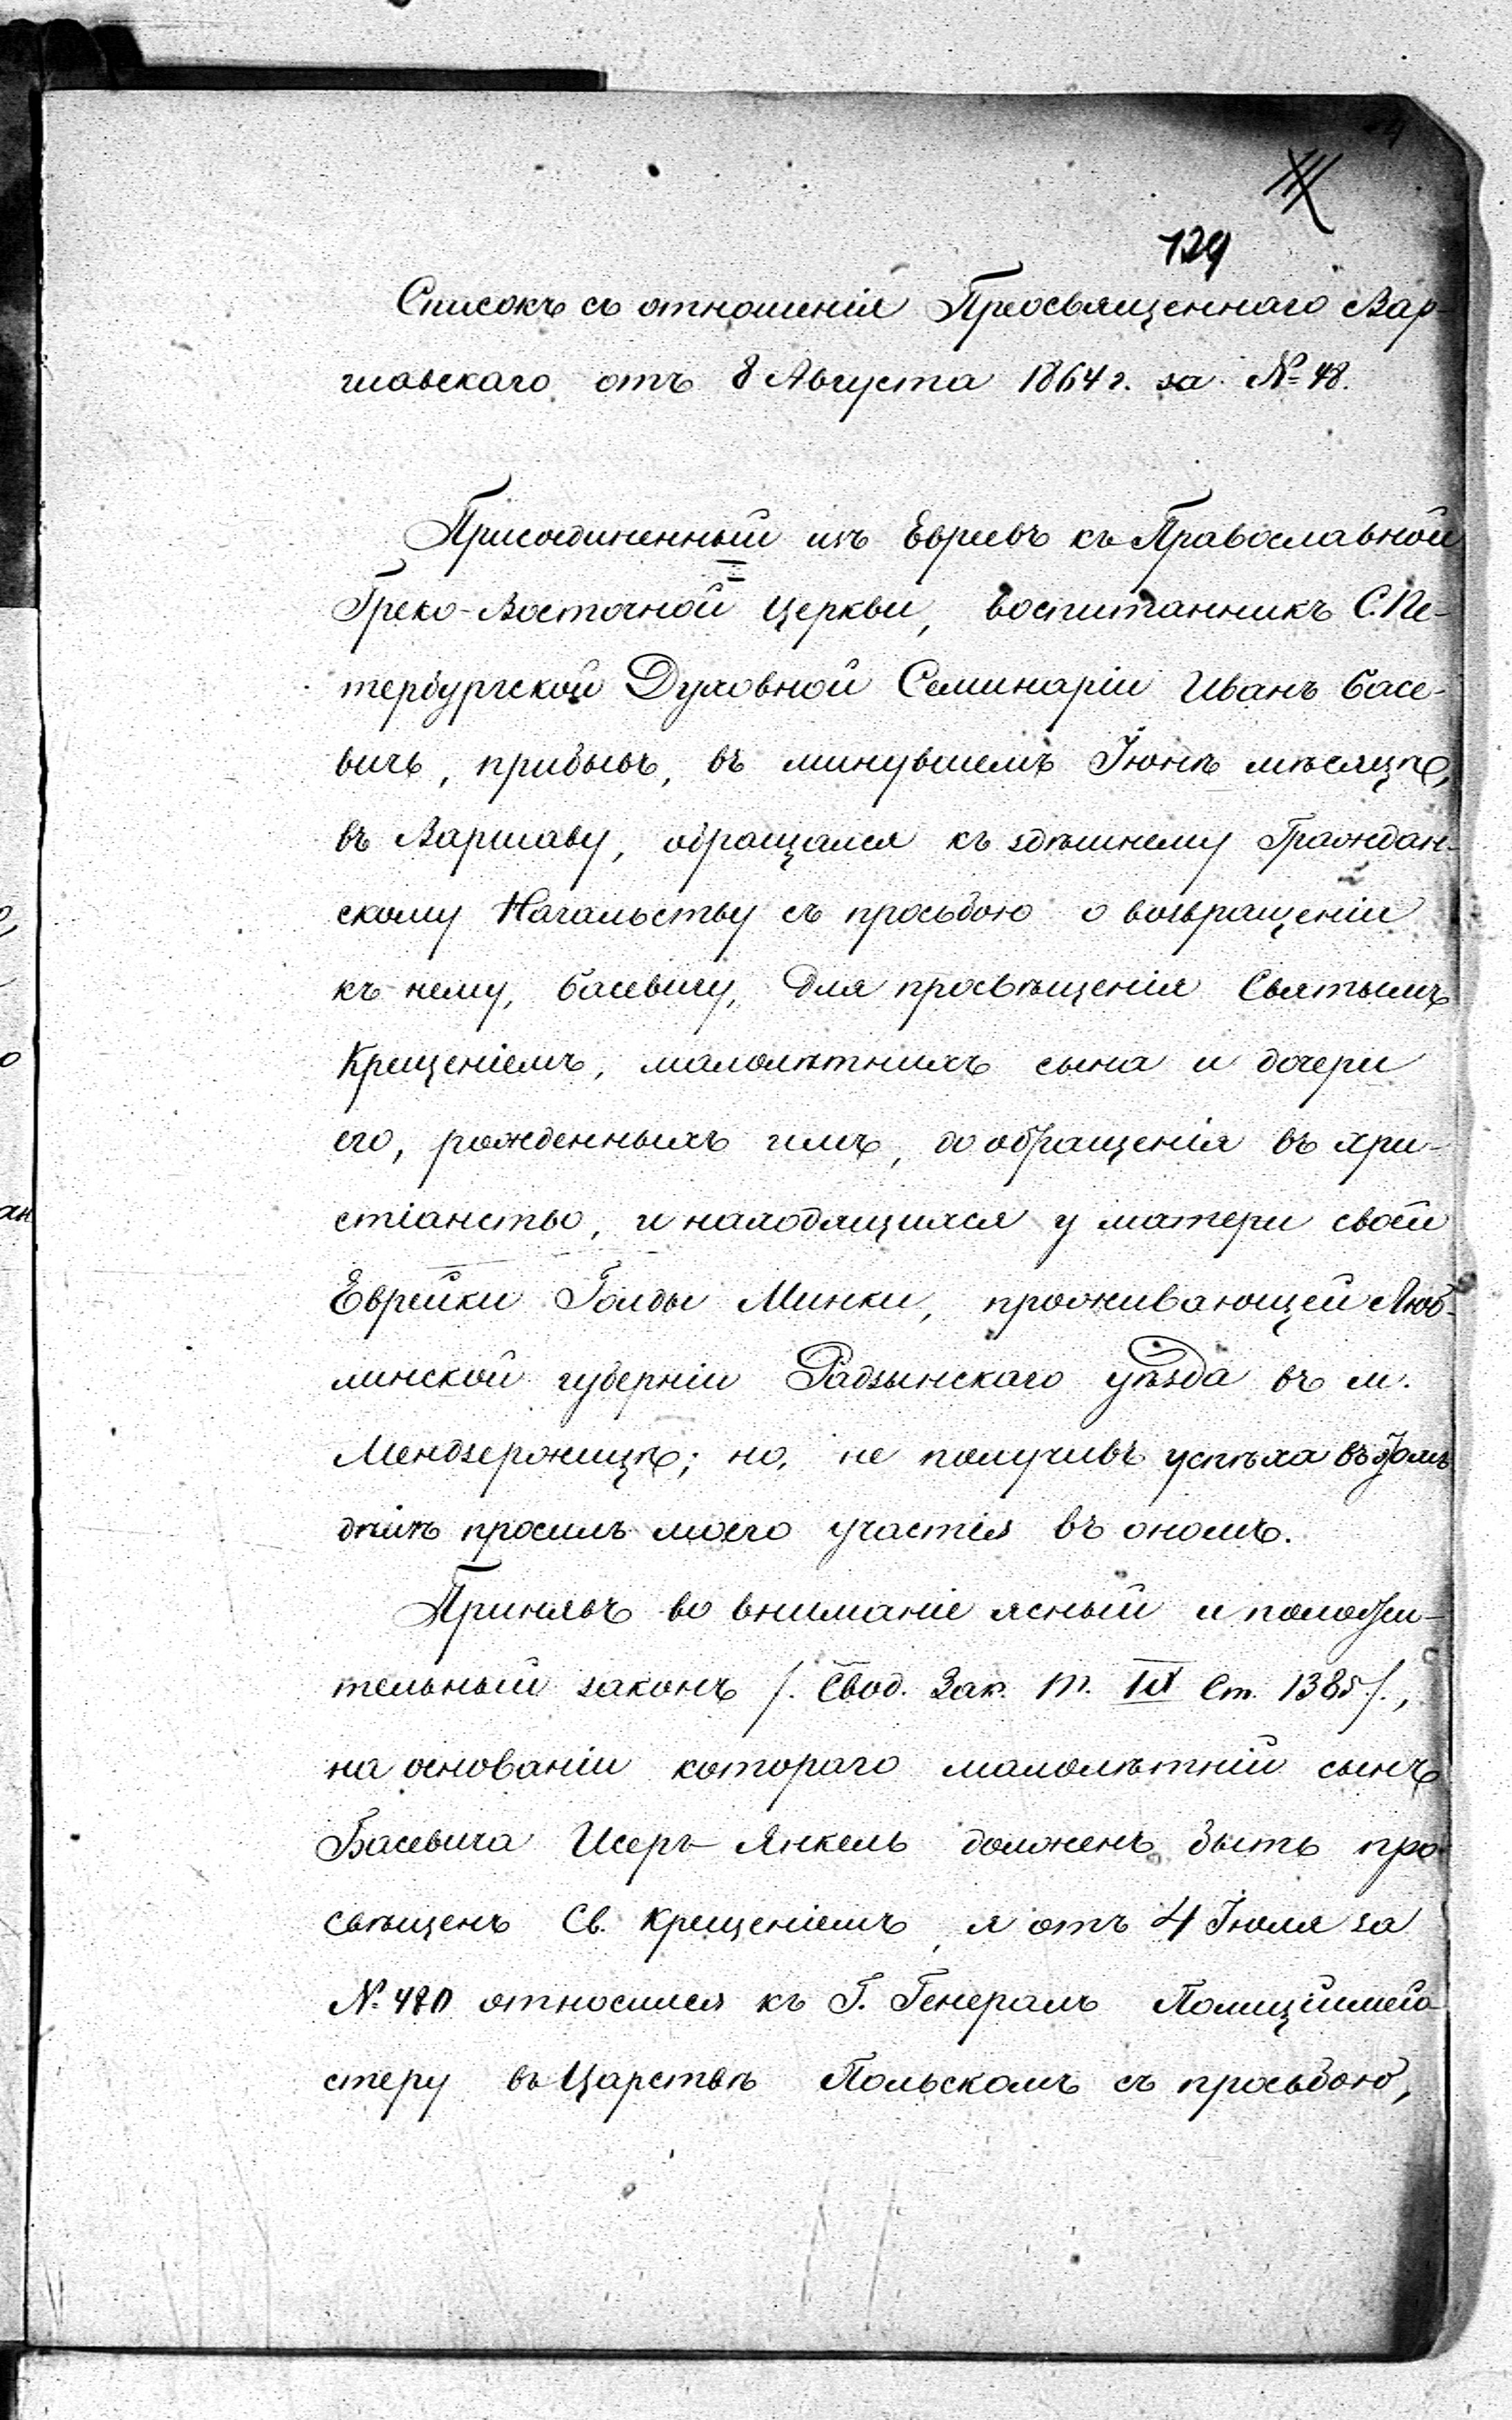 129
Списокъ съ отношенія Преосвященнаго Вар-
шавскаго отъ 8 Августа 1864 г. за № 48.
Присоединенный изъ Евреевъ къ Православной
Греко-Восточной Церкви, воспитанникъ С. Пе-
тербургской Духовной Семинаріи Иванъ Басе-
вичъ, прибывъ, въ минувшемъ Іюнѣ мѣсяцѣ,
въ Варшаву, обращался къ здѣшнему Граждан-
скому Начальству съ просьбою о возвращеніи
къ нему, Басевичу, для просвѣщенія Святымъ
Крещеніемъ, малолѣтнихъ сына и дочери
его, рожденныхъ имъ, до обращенія въ хри-
стіанство, и находящихся у матери своей
Еврейки Голды Минки, проживающей Люб-
линской губерніи Радзынскаго уѣзда въ м.
Мендзержицѣ; но, не получивъ успѣха въ этомъ
дѣлѣ просилъ моего участія въ ономъ.
Принявъ во вниманіе ясный и положи-
тельный законъ /. Свод. Зак. т. IX Ст. 1385 /.,
на основаніи котораго малолѣтній сынъ
Басевича Исеръ-Янкель долженъ быть про-
свѣщенъ Св. Крещеніемъ, я отъ 4 Іюля за
№ 480 относился къ Г. Генералъ Полиціймей-
стеру въ Царствѣ Польскомъ съ просьбою,